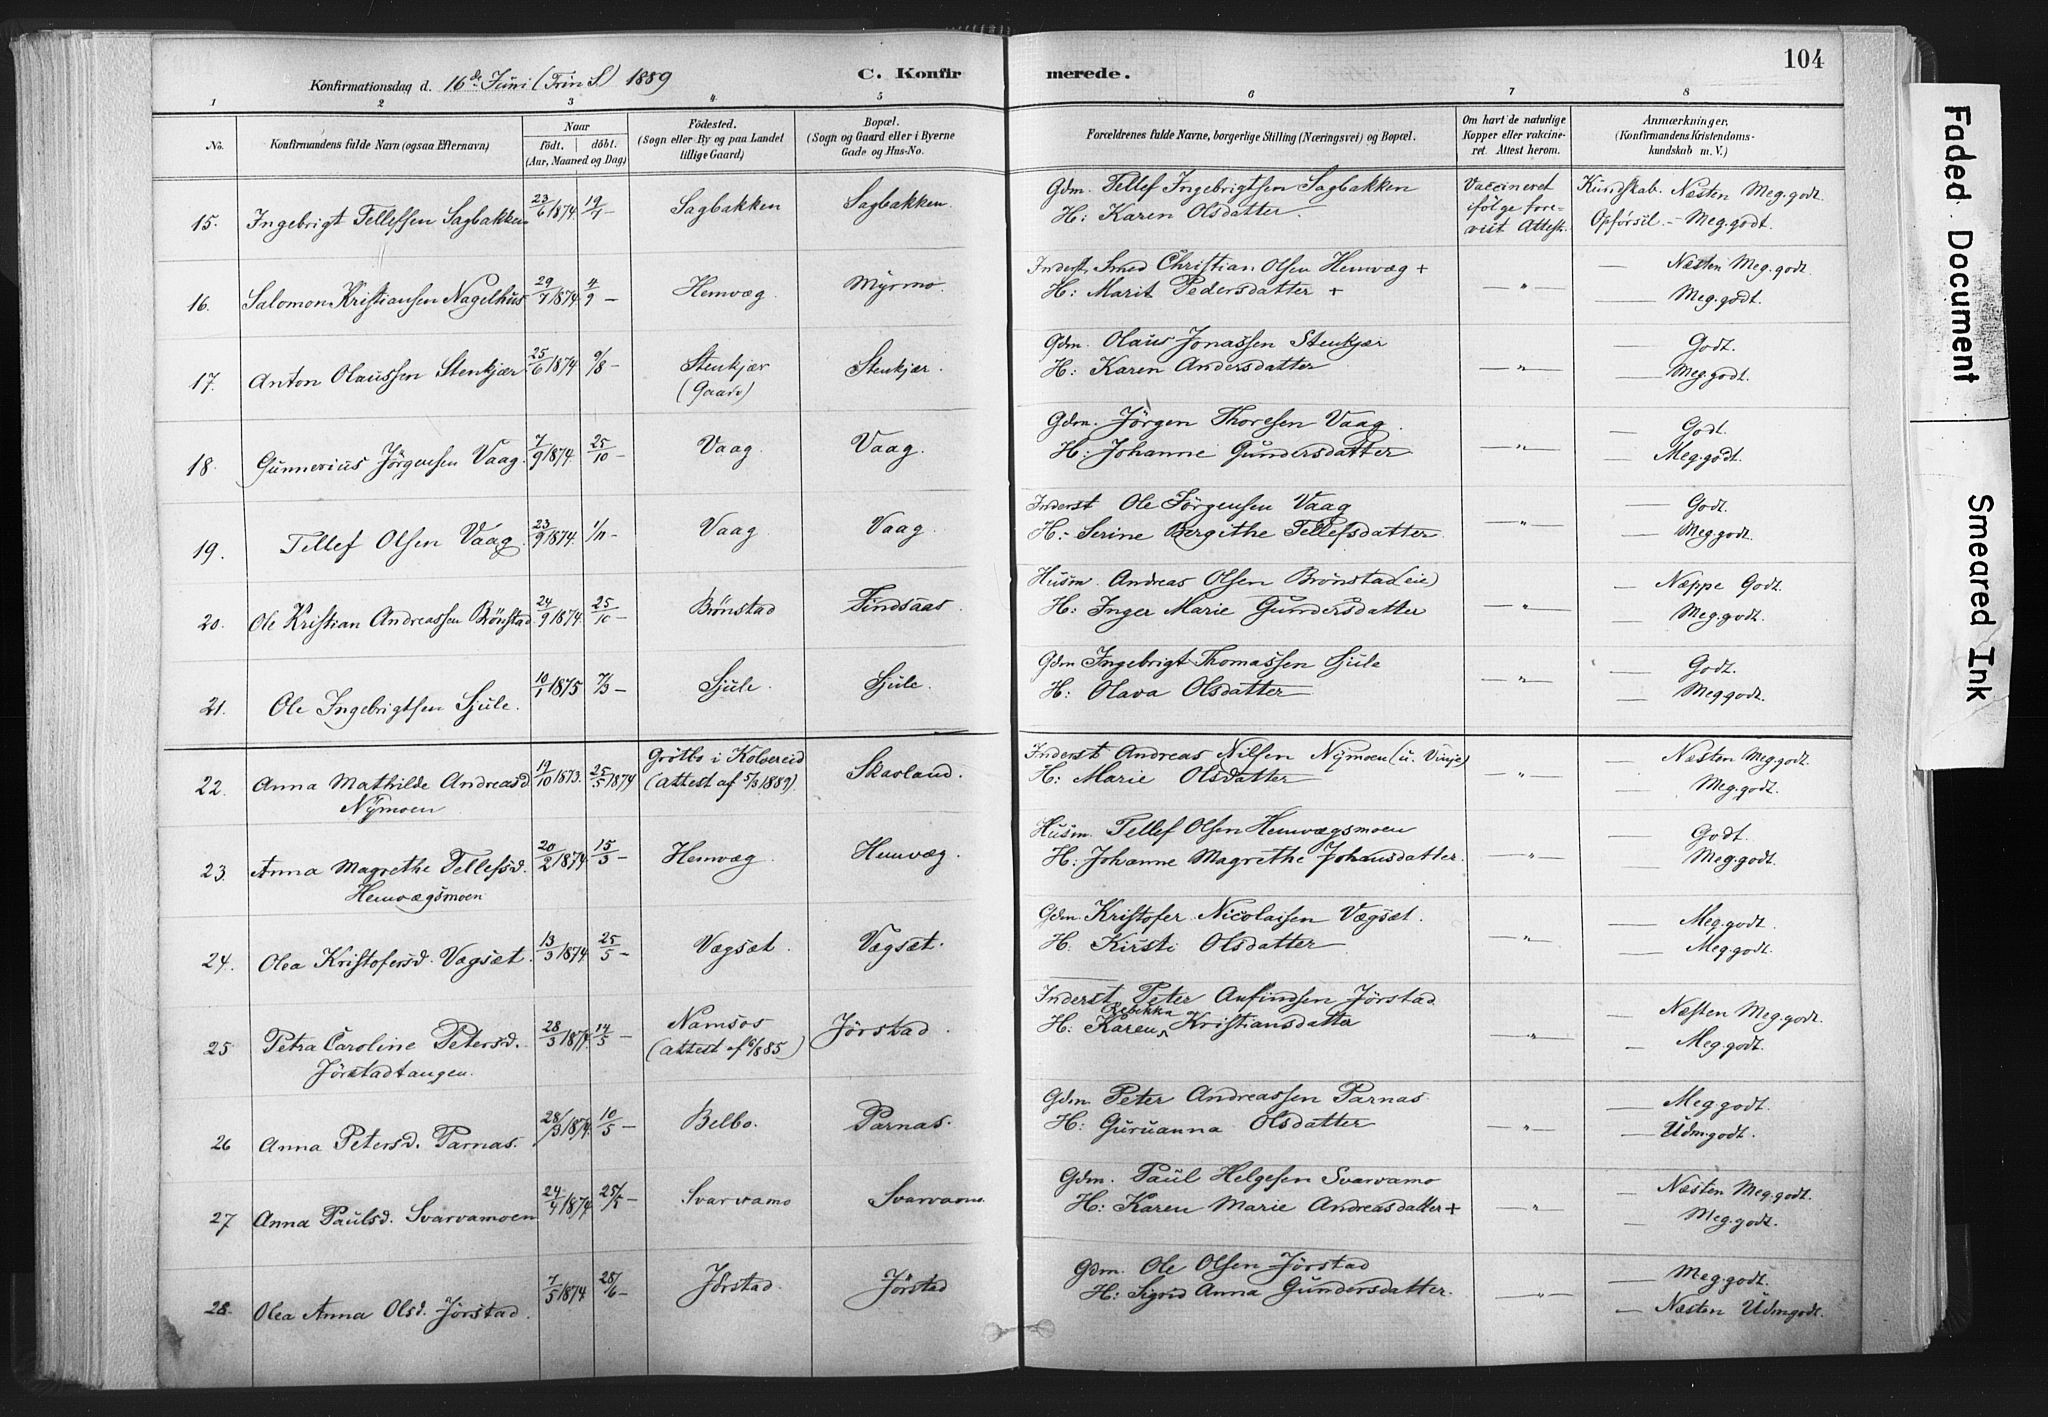 104
Konfirmationsdag d. 16de Juni (Trin S.) 1889
C. Konfirmerede.
1 2 3 4 5 6 7 8
No.
Konfirmandens fulde Navn (ogsaa Efternavn)
Naar
født. døbt.
(Aar, Maaned og Dag)
Fødested.
(Sogn eller By og paa Landet
tillige Gaard)
Bopæl.
(Sogn og Gaard eller i Byerne
Gade og Hus-No.
Forældrenes fulde Navne, borgerlige Stilling (Næringsvei) og Bopæl.
Om havt de naturlige
Kopper eller vaccine-
ret. Attest herom.
Anmærkninger,
(Konfirmandens Kristendoms-
kundskab m. V.)
15. Ingebrigt Tellefsen Sagbakken 23/6 1874 19/1 - Sagbakken Sagbakken. Gdm. Tellef Ingebrigtsen Sagbakken Vaccineret Kundskab. Næsten Meg.godt.
H: Karen Olsdatter. ifølge fore- Opførsel. - Meg.godt.
vist Attest.
16. Salomon Kristiansen Nagelhus 29/7 1874 4/9 - Hemvæg. Myrmo. Inderst, Smed Christian Olsen Hemvæg + — " — — Næsten Meg.godt.
H: Marit Pedersdatter + — Meg.godt.
17. Anton Olaussen Stenkjær 25/6 1874 9/8 - Stenkjær Stenkjær. Gdm. Olaus Jonassen Stenkjær — " — — Godt.
(Gaard) H: Karen Andersdatter — Meg.godt.
18. Gunnerius Jørgensen Vaag. 7/9 1874 25/10 - Vaag. Vaag. Gdm. Jørgen Thoresen Vaag. — " — — Godt.
H: Johanne Gundersdatter — Meg.godt.
19. Tellef Olsen Vaag 23/9 1874. 1/11 - Vaag. Vaag. Inderst Ole Jørgensen Vaag — " — — Godt.
H: Serine Bergithe Tellefsdatter. — Meg.godt.
20. Ole Kristian Andreassen Brønstad 24/9 1874. 25/10 - Brønstad Findsaas. Husm. Andreas Olsen Brønstad(eie) — " — — Neppe Godt.
H: Inger Marie Gundersdatter — Meg.godt.
21. Ole Ingebrigtsen Sjule. 10/1 1875 7/3 - Sjule. Sjule. Gdm Ingebrigt Thomassen Sjule — " — — Godt.
H: Olava Olsdatter — Meg godt.
22. Anna Mathilde Andreasd. 19/10 1873. 25/5 1874 Grøtbo i Kolvereid Skavland. Inderst Andreas Nilsen Nymoen (u. Vinje) — " — — Næsten Meg.godt.
Nymoen (Attest af 5/3 1889). H: Marie Olsdatter — Meg.godt.
23. Anna Magrethe Tellefsd. 20/2 1874 15/3 - Hemvæg. Hemvæg. Husm. Tellef Olsen Hemvægsmoen — " — — Godt.
Hemvægsmoen H: Johanne Magrethe Johansdatter. — Meg.godt.
24. Olea Kristofersd. Vægsæt. 13/3 1874 25/5 - Vægsæt. Vægsæt. Gdm. Kristofer Nicolaisen Vægsæt. — " — — Meg.godt.
H: Kirsti Olsdatter — Meg.godt.
25 Petra Caroline Petersd. 28/3 1874. 14/5 - Namsos Jørstad. Inderst Peter Anfindsen Jørstad — " — — Næsten Meg.godt.
Jørstadtangen. (Attest af 6/8 85) H: Karen Rebekka Kristiansdatter — Meg.godt.
26 Anna Petersd. Parnas. 28/3 1874. 10/5 - Belbo. Parnas. Gdm. Peter Andreassen Parnas. — " — — Meg.godt.
H: Guruanna Olsdatter — Udm.godt.
27 Anna Paulsd. Svarvamoen 24/4 1874 25/5 - Svarvamo Svarvamo. Gdm. Paul Helgesen Svarvamo — " — — Næsten Meg.godt.
H: Karen Marie Andreasdatter + — Meg.godt.
28. Olea Anna Olsd. Jørstad. 7/5 1874 28/6 - Jørstad. Jørstad Gdm. Ole Olsen Jørstad — " — — Meg.godt.
H: Sigrid Anna Gundersdatter. — Næsten Udm.godt.
Faded Document
Smeared Ink